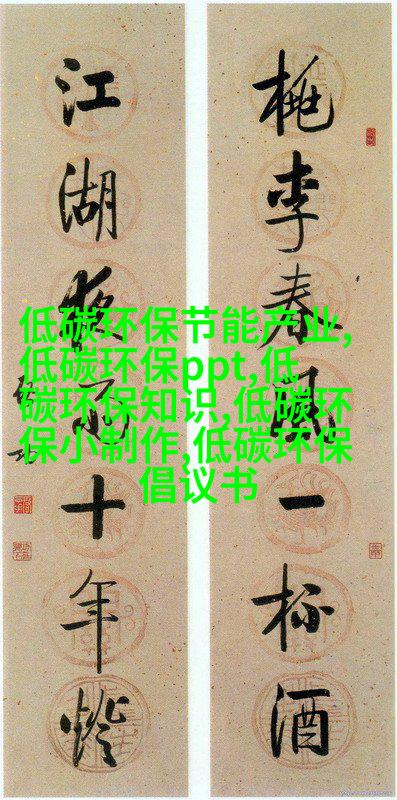 桃李春風一杯酒
江湖夜雨十年燈
启功
低碳环保节能产业,
低碳环保ppt,低
碳环保知识,低碳环
保小制作,低碳环保
倡议书